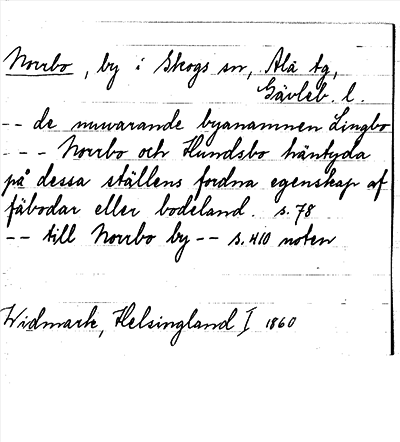 Norrbo, by i Skogs sn, Ala tg,
Gävleb. l.
-- de nuvarande byanamnen Lingbo
--- Norrbo och Hundsbo häntyda
på dessa ställens fordna egenskap af
fäbodar eller bodeland. s. 78
-- till Norrbo by -- s. 410 noten
Widmark, Helsingland I 1860